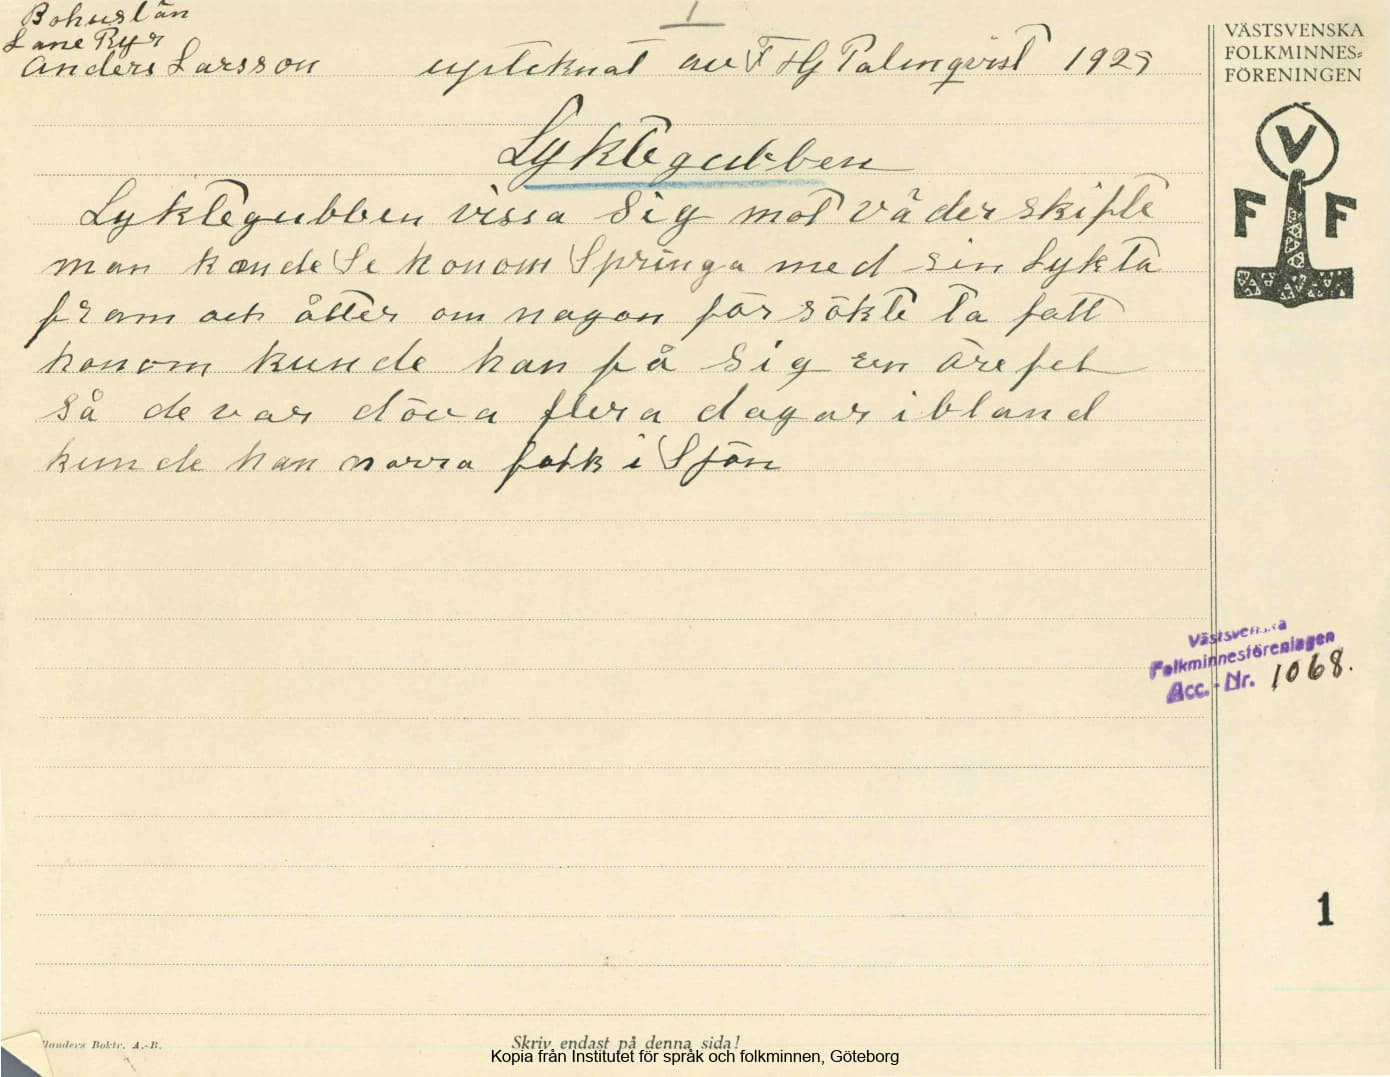 1
Bohuslän
Lane Ryr
Anders Larsson upteknat av F HG Palmqvist 1929
VÄSTSVENSKA
FOLKMINNES=
FÖRENINGEN
V
F F
Lyktegubben
Lyktegubben vissa Sig mot väderskifte
man kunde Se honom Springa med sin Lykta
fram och åtter om nagon försökte ta fatt
honom kunde han få Sig en örefel
så de var döva flera dagar ibland
kunde han narra folk i Sjön
Västsvenska
Folkminnesföreningen
Acc.-Nr. 1068.
1
Boktr. A.-B.
Skriv endast på denna sida!
Kopia från Institutet för språk och folkminnen, Göteborg